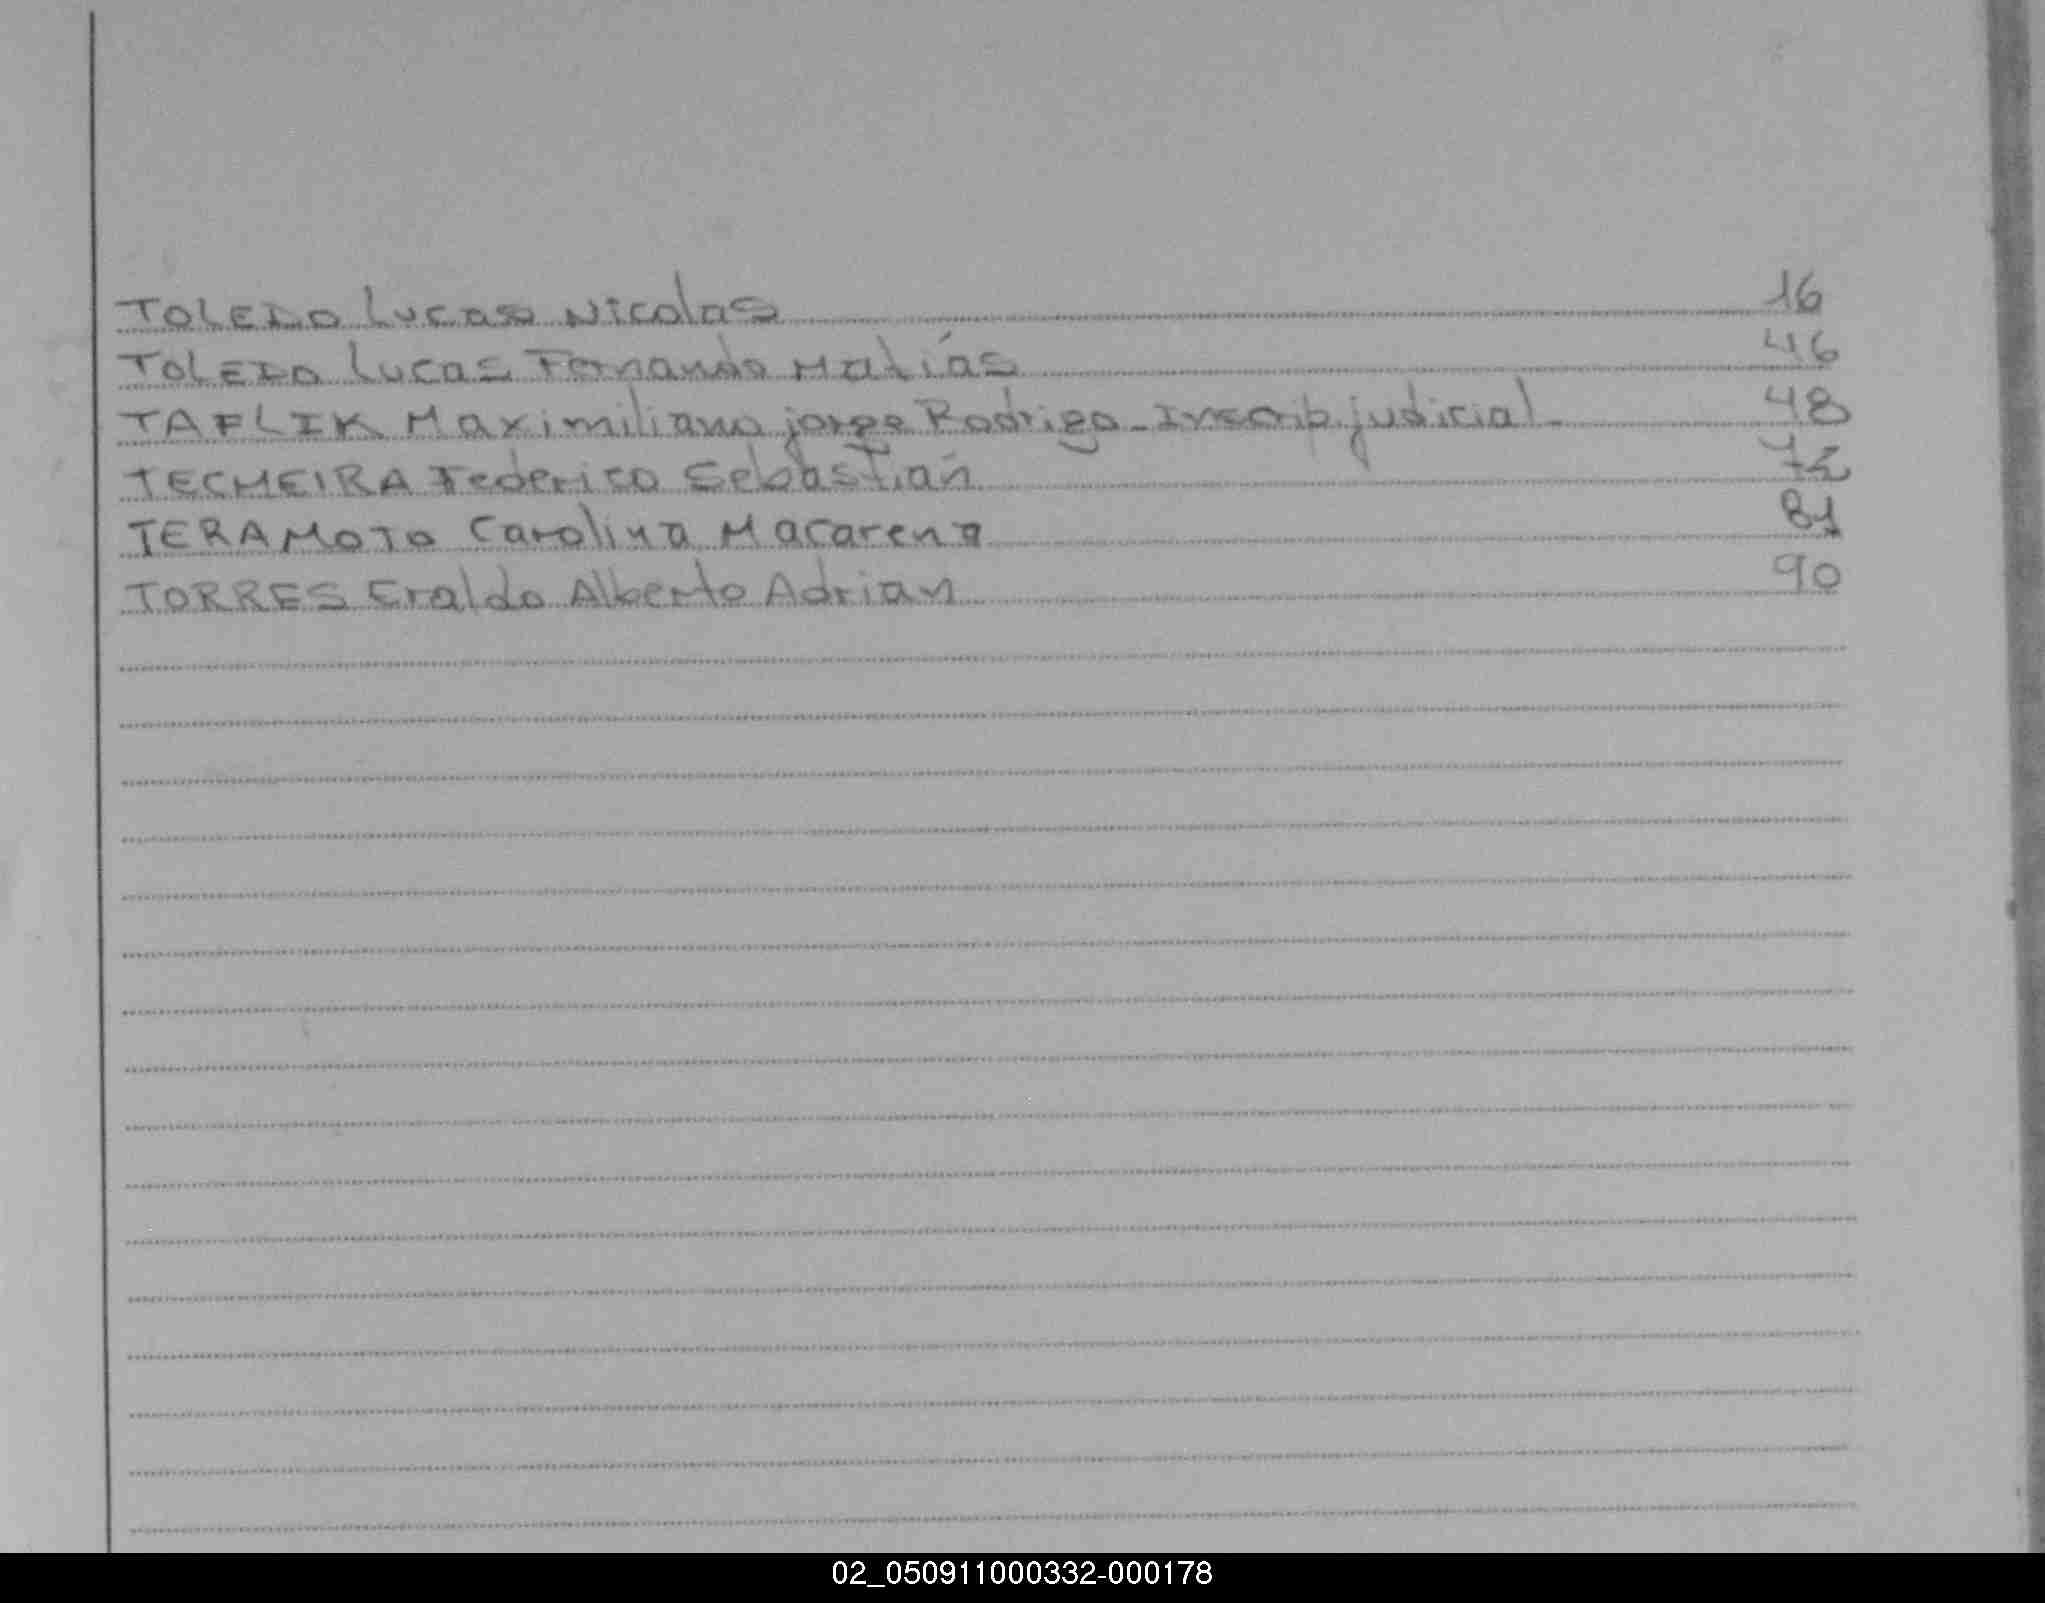 TOLEDO Lucas Nicolas 16
TOLEDO Lucas Fernando Matías 46
TAFLIK Maximiliano jorge Rodrigo - Inscrip. judicial - 48
TECHEIRA Federico Sebastian 72
TERAMOTO Carolina Macarena 81
TORRES Eraldo Alberto Adrian 90
02_050911000332-000178